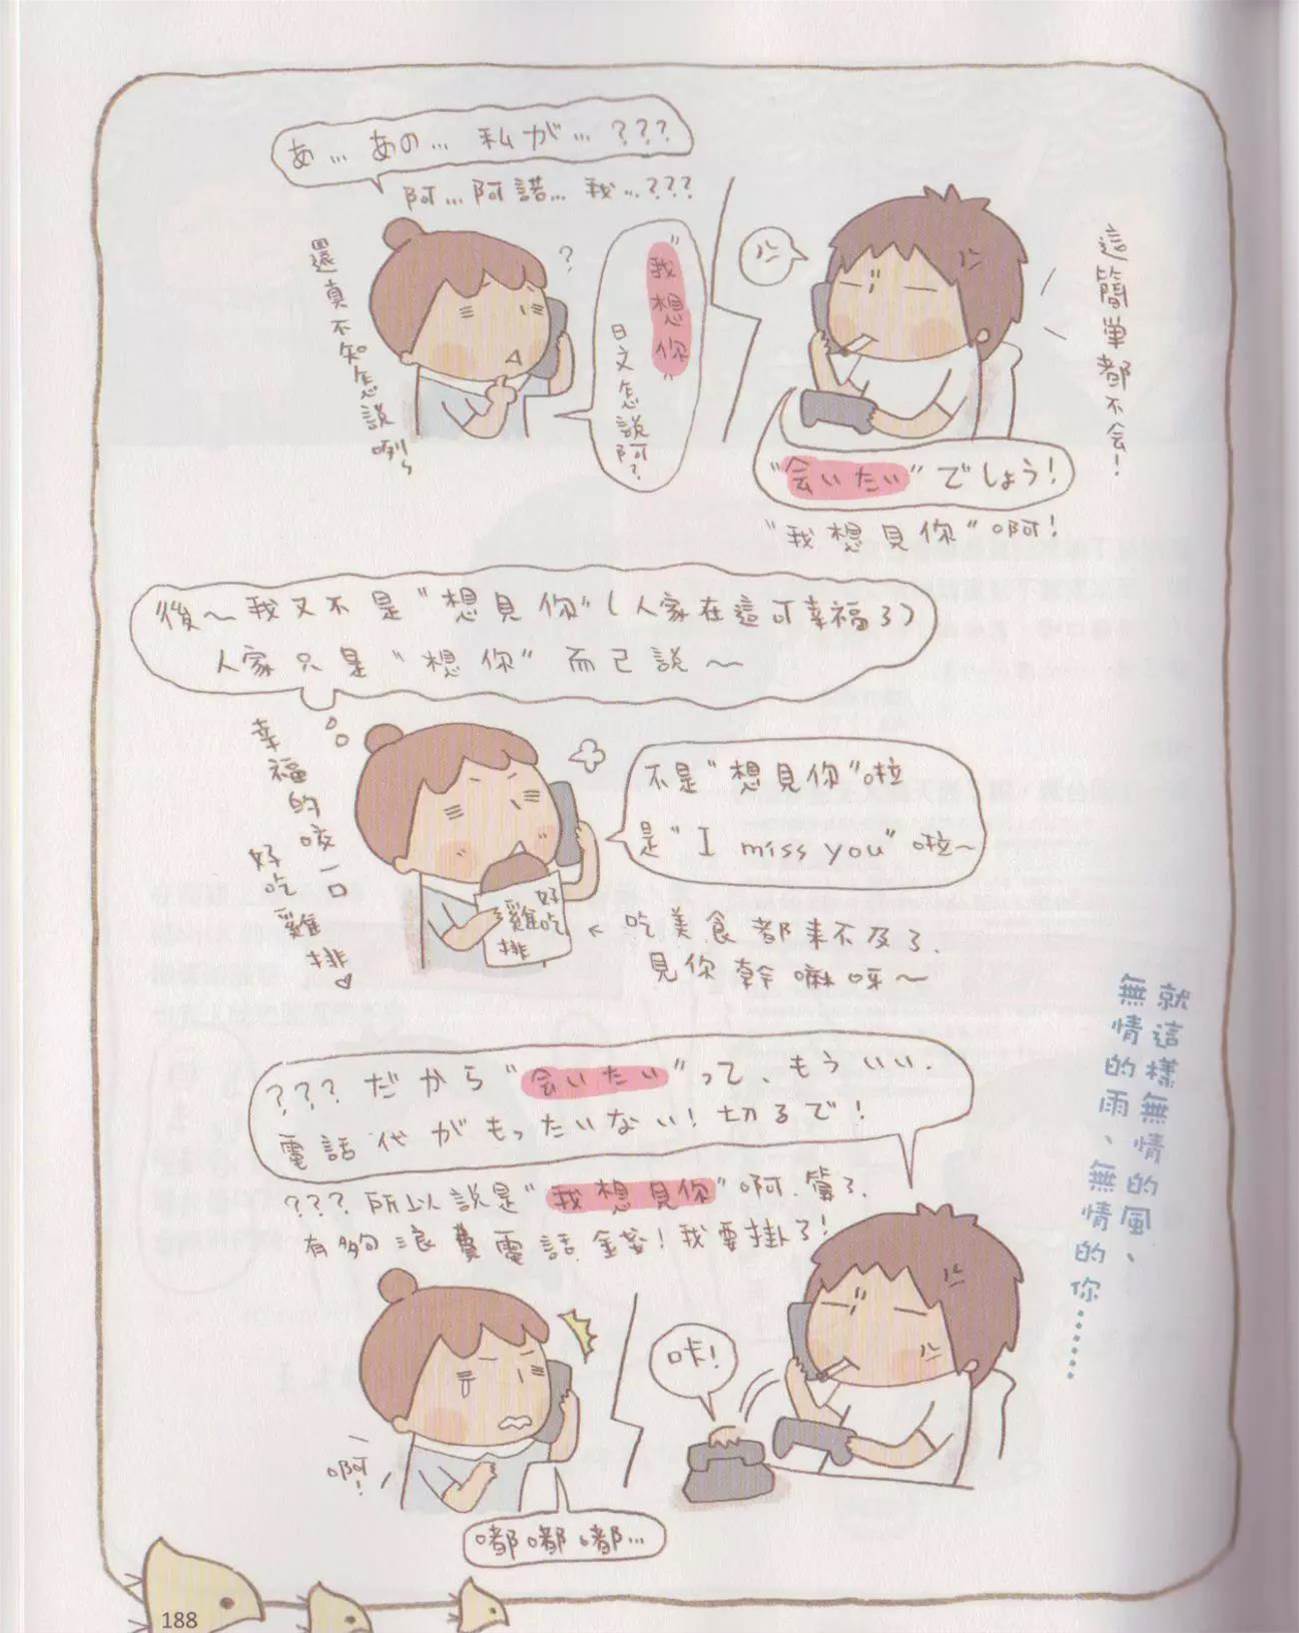 あ…あの…私が…???
阿…阿諾…我…???
還真不知怎說咧~
?
"我想你"
日文怎說阿?
這簡單都不会!
"会いたい"でしょう!
"我想見你"啊!
後~我又不是"想見你"(人家在這可幸福了)
人家只是"想你"而己說~
幸福的咬一口
好吃雞排♡
不是"想見你"啦
是"I miss you"啦~
好吃
雞
排
← 吃美食都來不及了.
見你幹嘛呀~
???だから"会いたい"って、もういい.
電話代がもったいない!切るで!
???所以說是"我想見你"啊.算了.
有夠浪費電話錢!我要掛了!
就這樣無情的風、
無情的雨、無情的你……
咔!
啊!
嘟嘟嘟…
188